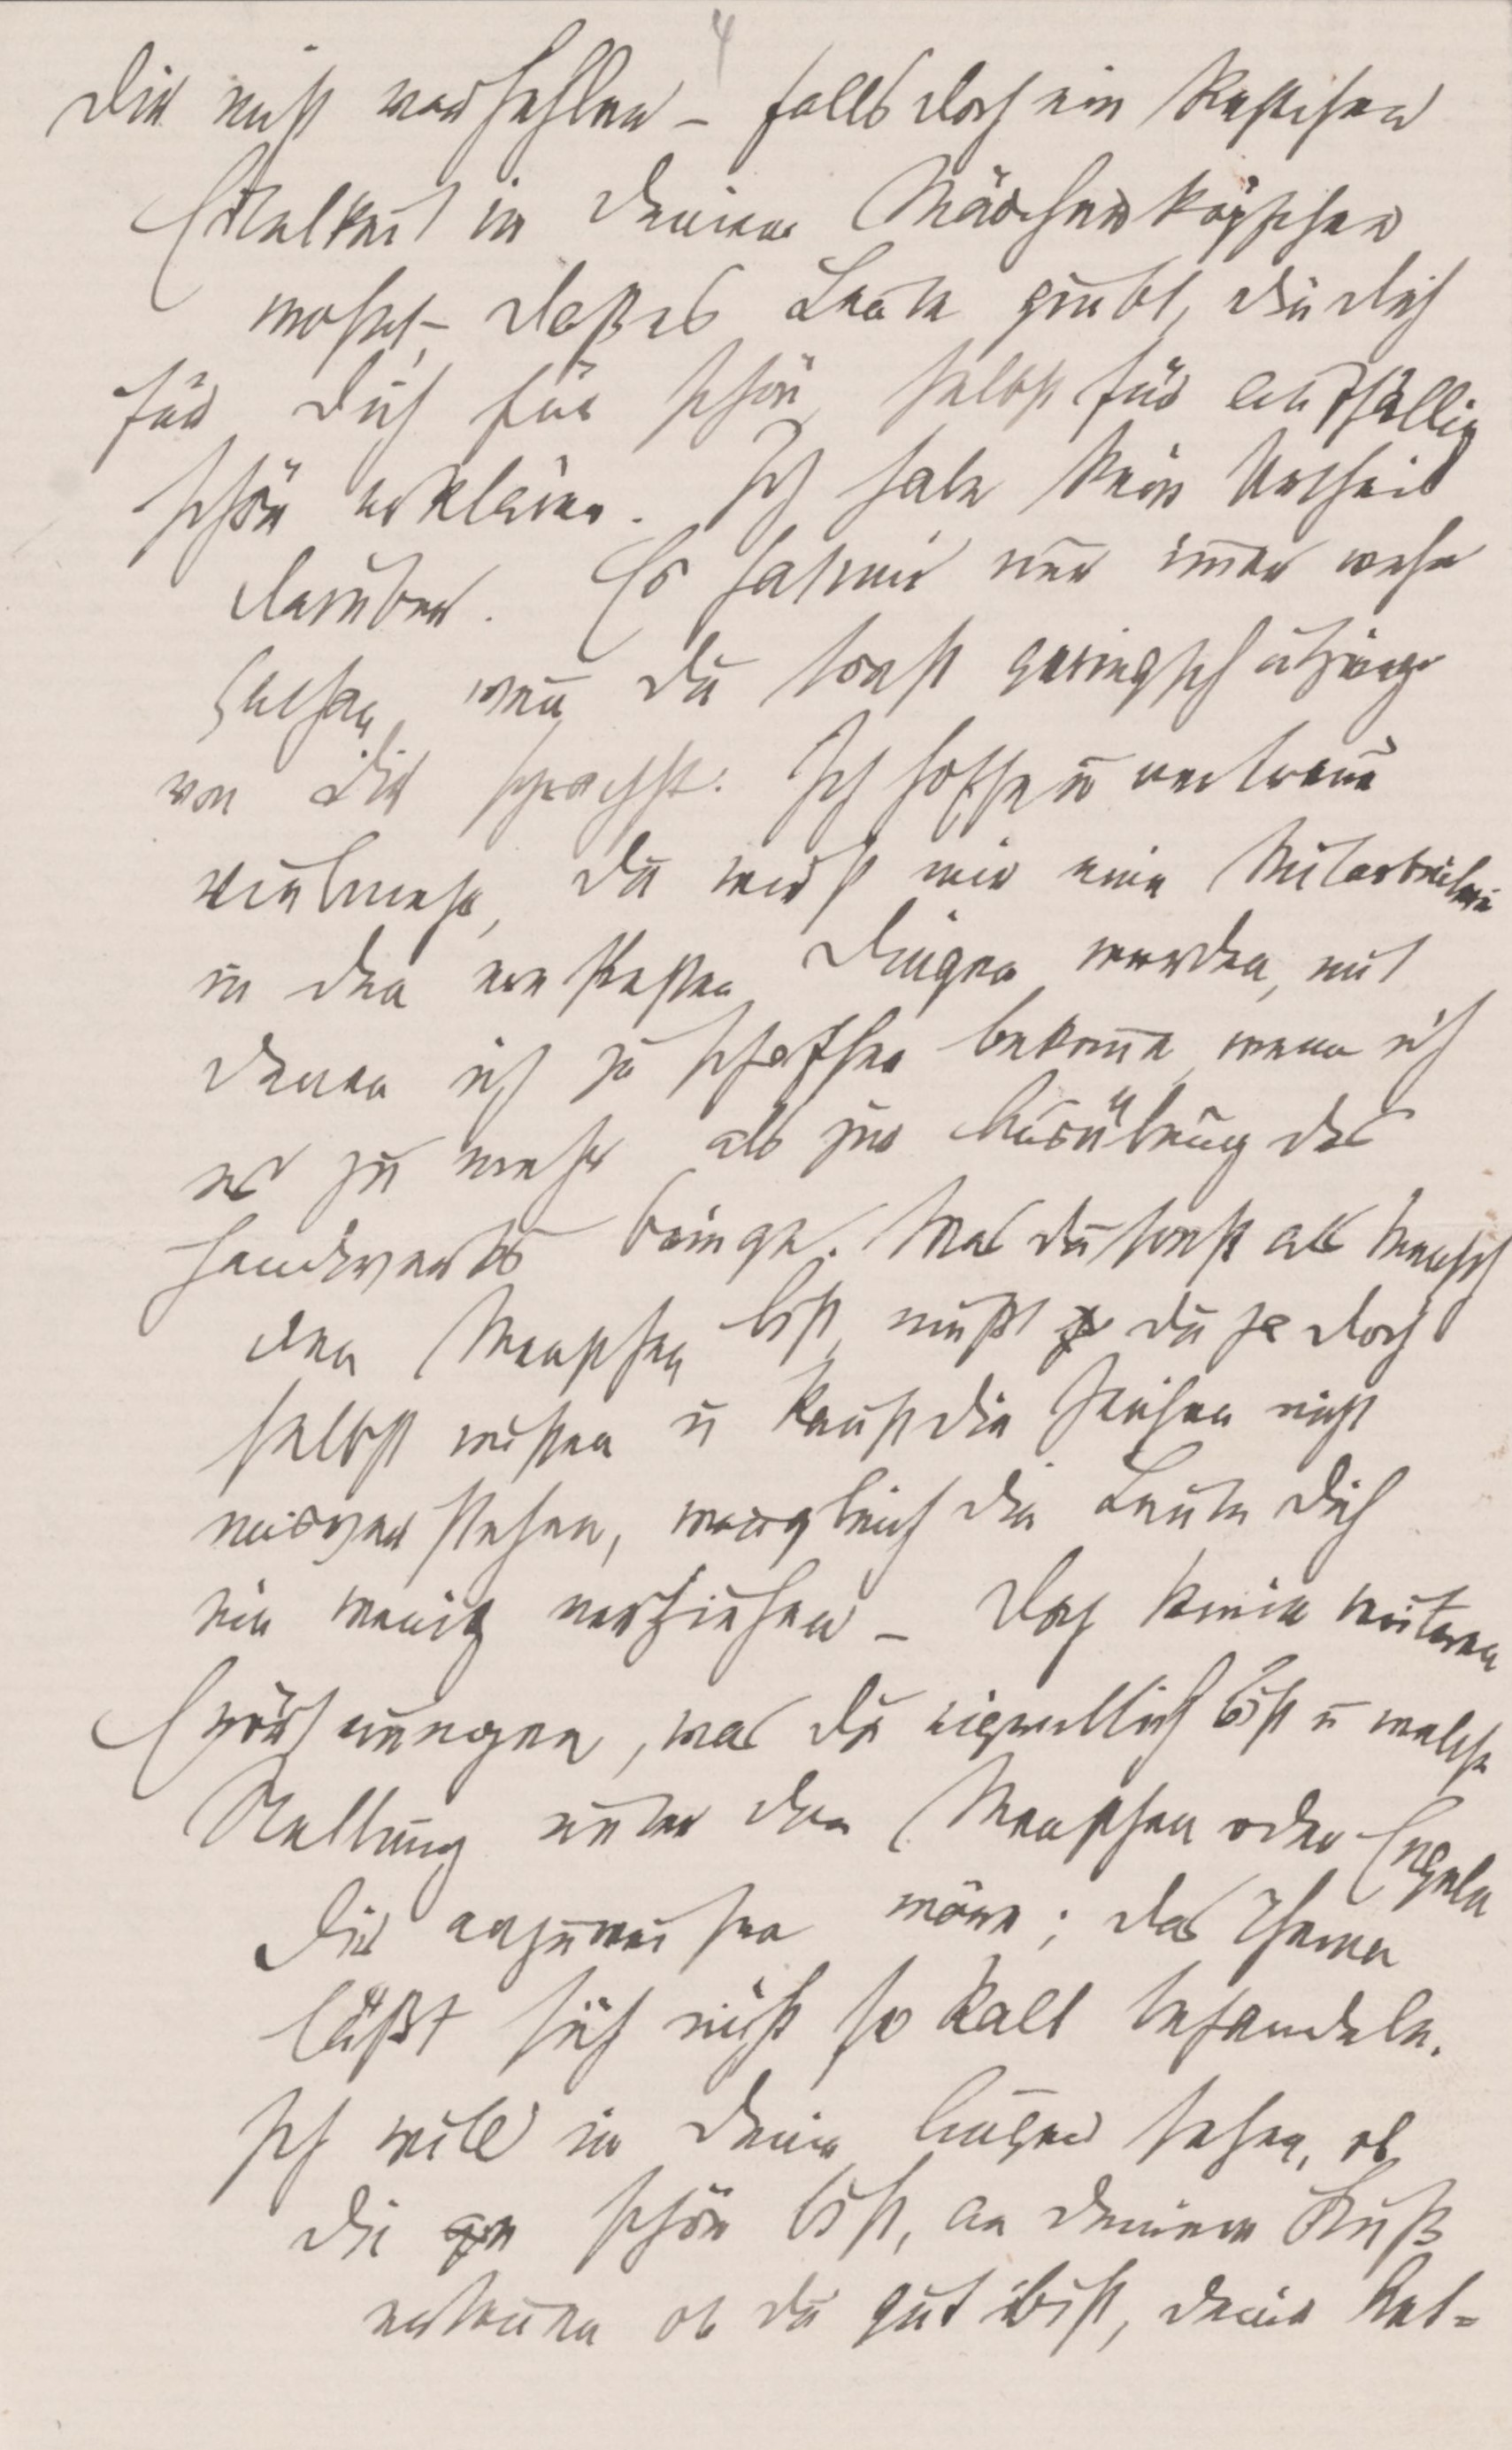 4
Dir nicht verhehlen – falls doch ein Restchen
Eitelkeit in Deinem Mädchenköpfchen
wohnt – daß es Leute giebt, die dich
für dich für schön, selbst für auffällig
schön erklären. Ich habe kein Urtheil
darüber. Es hat mir nur im̅er wehe
gethan, wen̅ du sonst geringschätzig
von Dir sprachst. Ich hoffe u vertraue
vielmehr, Du wirst mir eine Mitarbeiterin
in den ernstesten Dingen werden, mit
denen ich zu schaffen bekom̅e, wenn ich
es zu mehr als zur Ausübung des
Handwerks bringe. Was du sonst als Mensch
den Menschen bist, mußt du ja doch
selbst wissen u kannst die Zeichen nicht
misverstehen, wenngleich die Leute dich
ein wenig verziehen – Doch keine weiteren
Erörterungen, was du eigentlich bist u welche
Stellung unter den Menschen oder Engeln
Dir anzuweisen wäre; das Thema
läßt sich nicht so kalt behandeln.
Ich will in Deine Augen sehen, ob
du schön bist, an deinem Kuß
erkennen ob du gut bist, deine Rat=